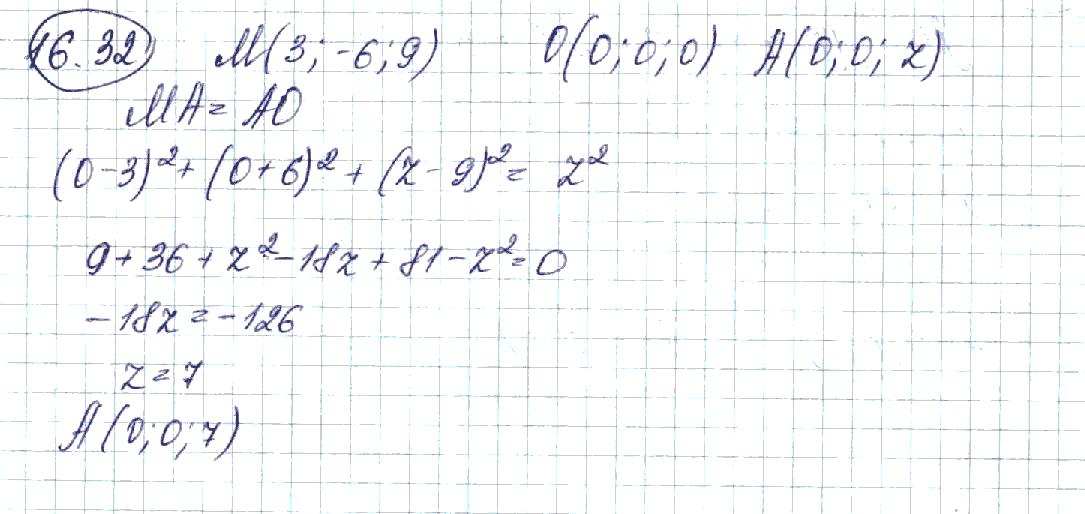 16.32 М(3; -6; 9) O(0; 0; 0) A(0; 0; z)
МА = АО
(0-3)² + (0+6)² + (z-9)² = z²
9 + 36 + z² - 18z + 81 - z² = 0
-18z = -126
z = 7
A(0; 0; 7)